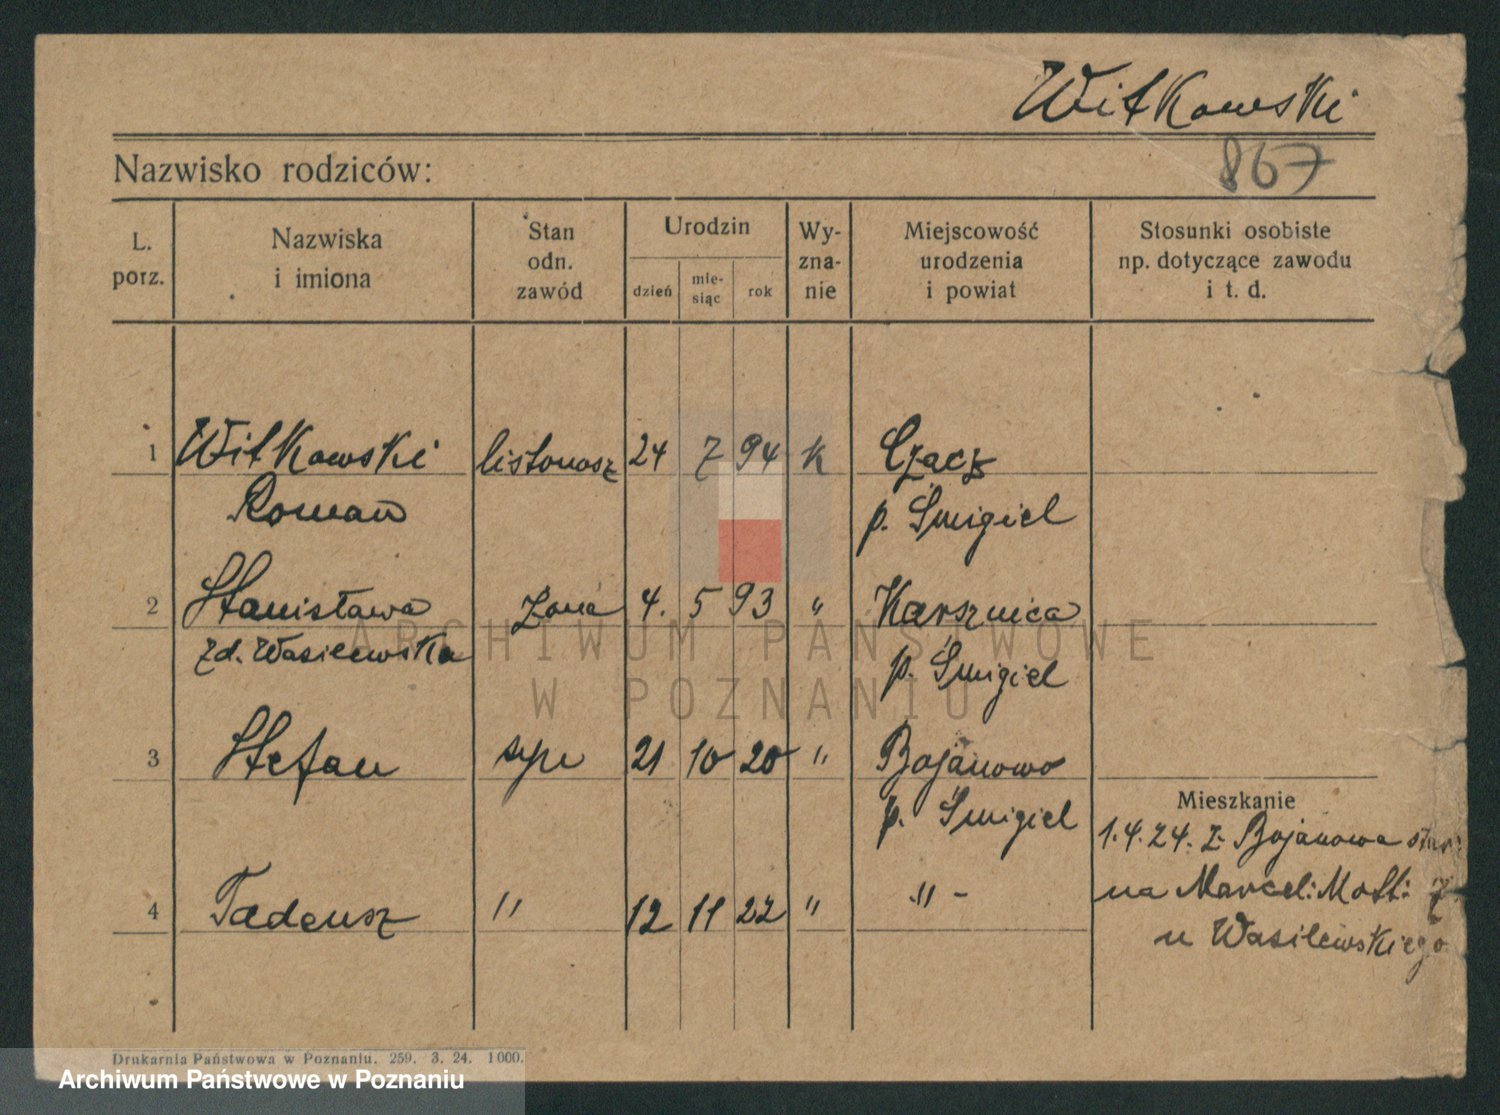 Witkowski
867
Nazwisko rodziców:
L. porz.
Nazwiska i imiona
Stan odn. zawód
Urodzin
dzień
mie-siąc
rok
Wy-zna-nie
Miejscowość urodzenia i powiat
Stosunki osobiste np. dotyczące zawodu i t. d.
1 Witkowski listonosz 24 7 94 k Czacz
Roman p. Śmigiel
2 Stanisława żona 4. 5 93 " Karsznica
zd. Wasilewska p. Śmigiel
3 Stefan syn 21 10 20 " Bojanowo
p. Śmigiel
Mieszkanie
1.4.24. z Bojanowa
4 Tadeusz " 12 11 22 " " -
na Marcel: Mott: 7.
u Wasilewskiego
ARCHIWUM PAŃSTWOWE
W POZNANIU
Drukarnia Państwowa w Poznaniu. 259. 3. 24. 1000.
Archiwum Państwowe w Poznaniu